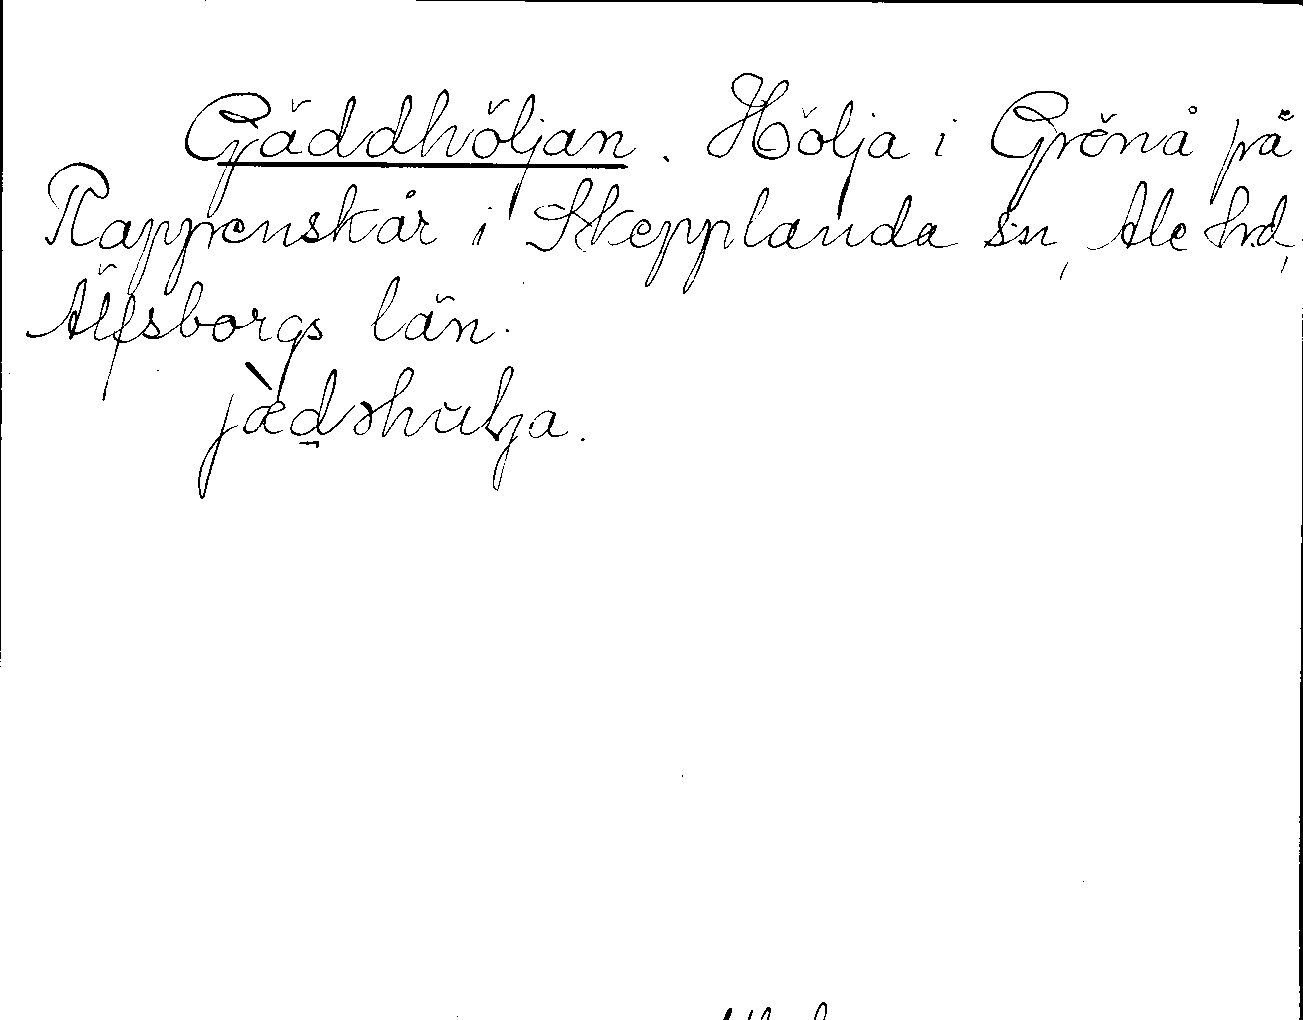 Gäddhöljan. Hölja i Grönå på
Rappenskår i Skepplanda sn, Ale hd,
Älfsborgs län.
jæ̀dshulja.